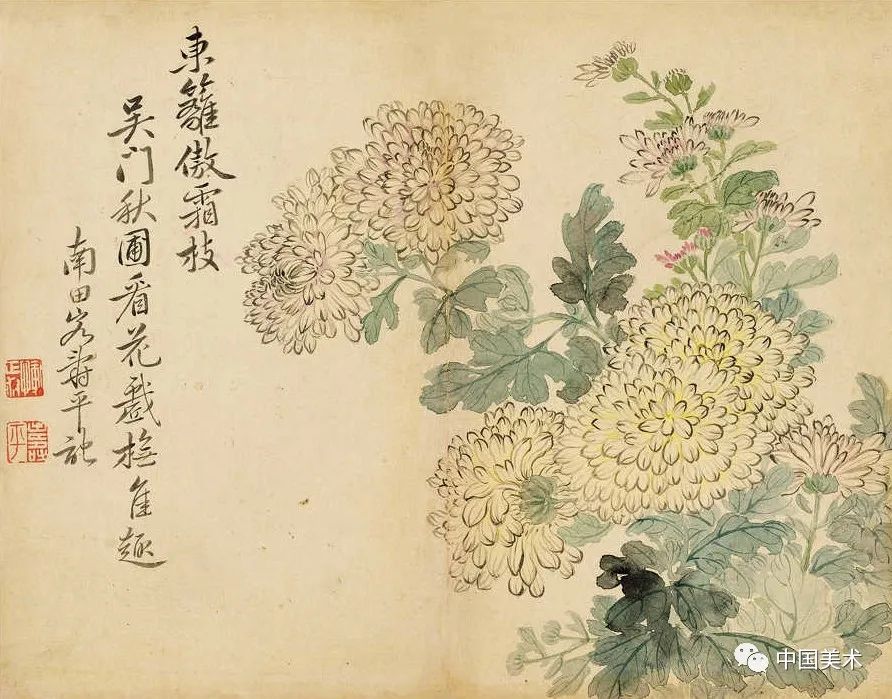 東籬傲霜枝
吳门秋圃看花戲橅佳趣
南田客壽平記
壽平
中国美术